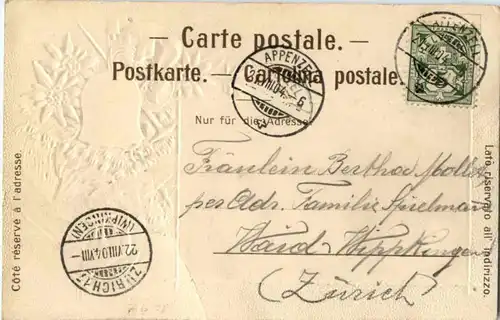 — Carte postale. —
Postkarte. — Cartolina postale.
Nur für die Adresse
Côté réservé à l'adresse.
Lato riservato all' indirizzo.
APPENZELL
APPENZELL
Fräulein Bertha
per Adr. Familie
Waid Wippkingen
(Zürich)
ZÜRICH
22.VIII.04.VIII
(WIPKINGEN)